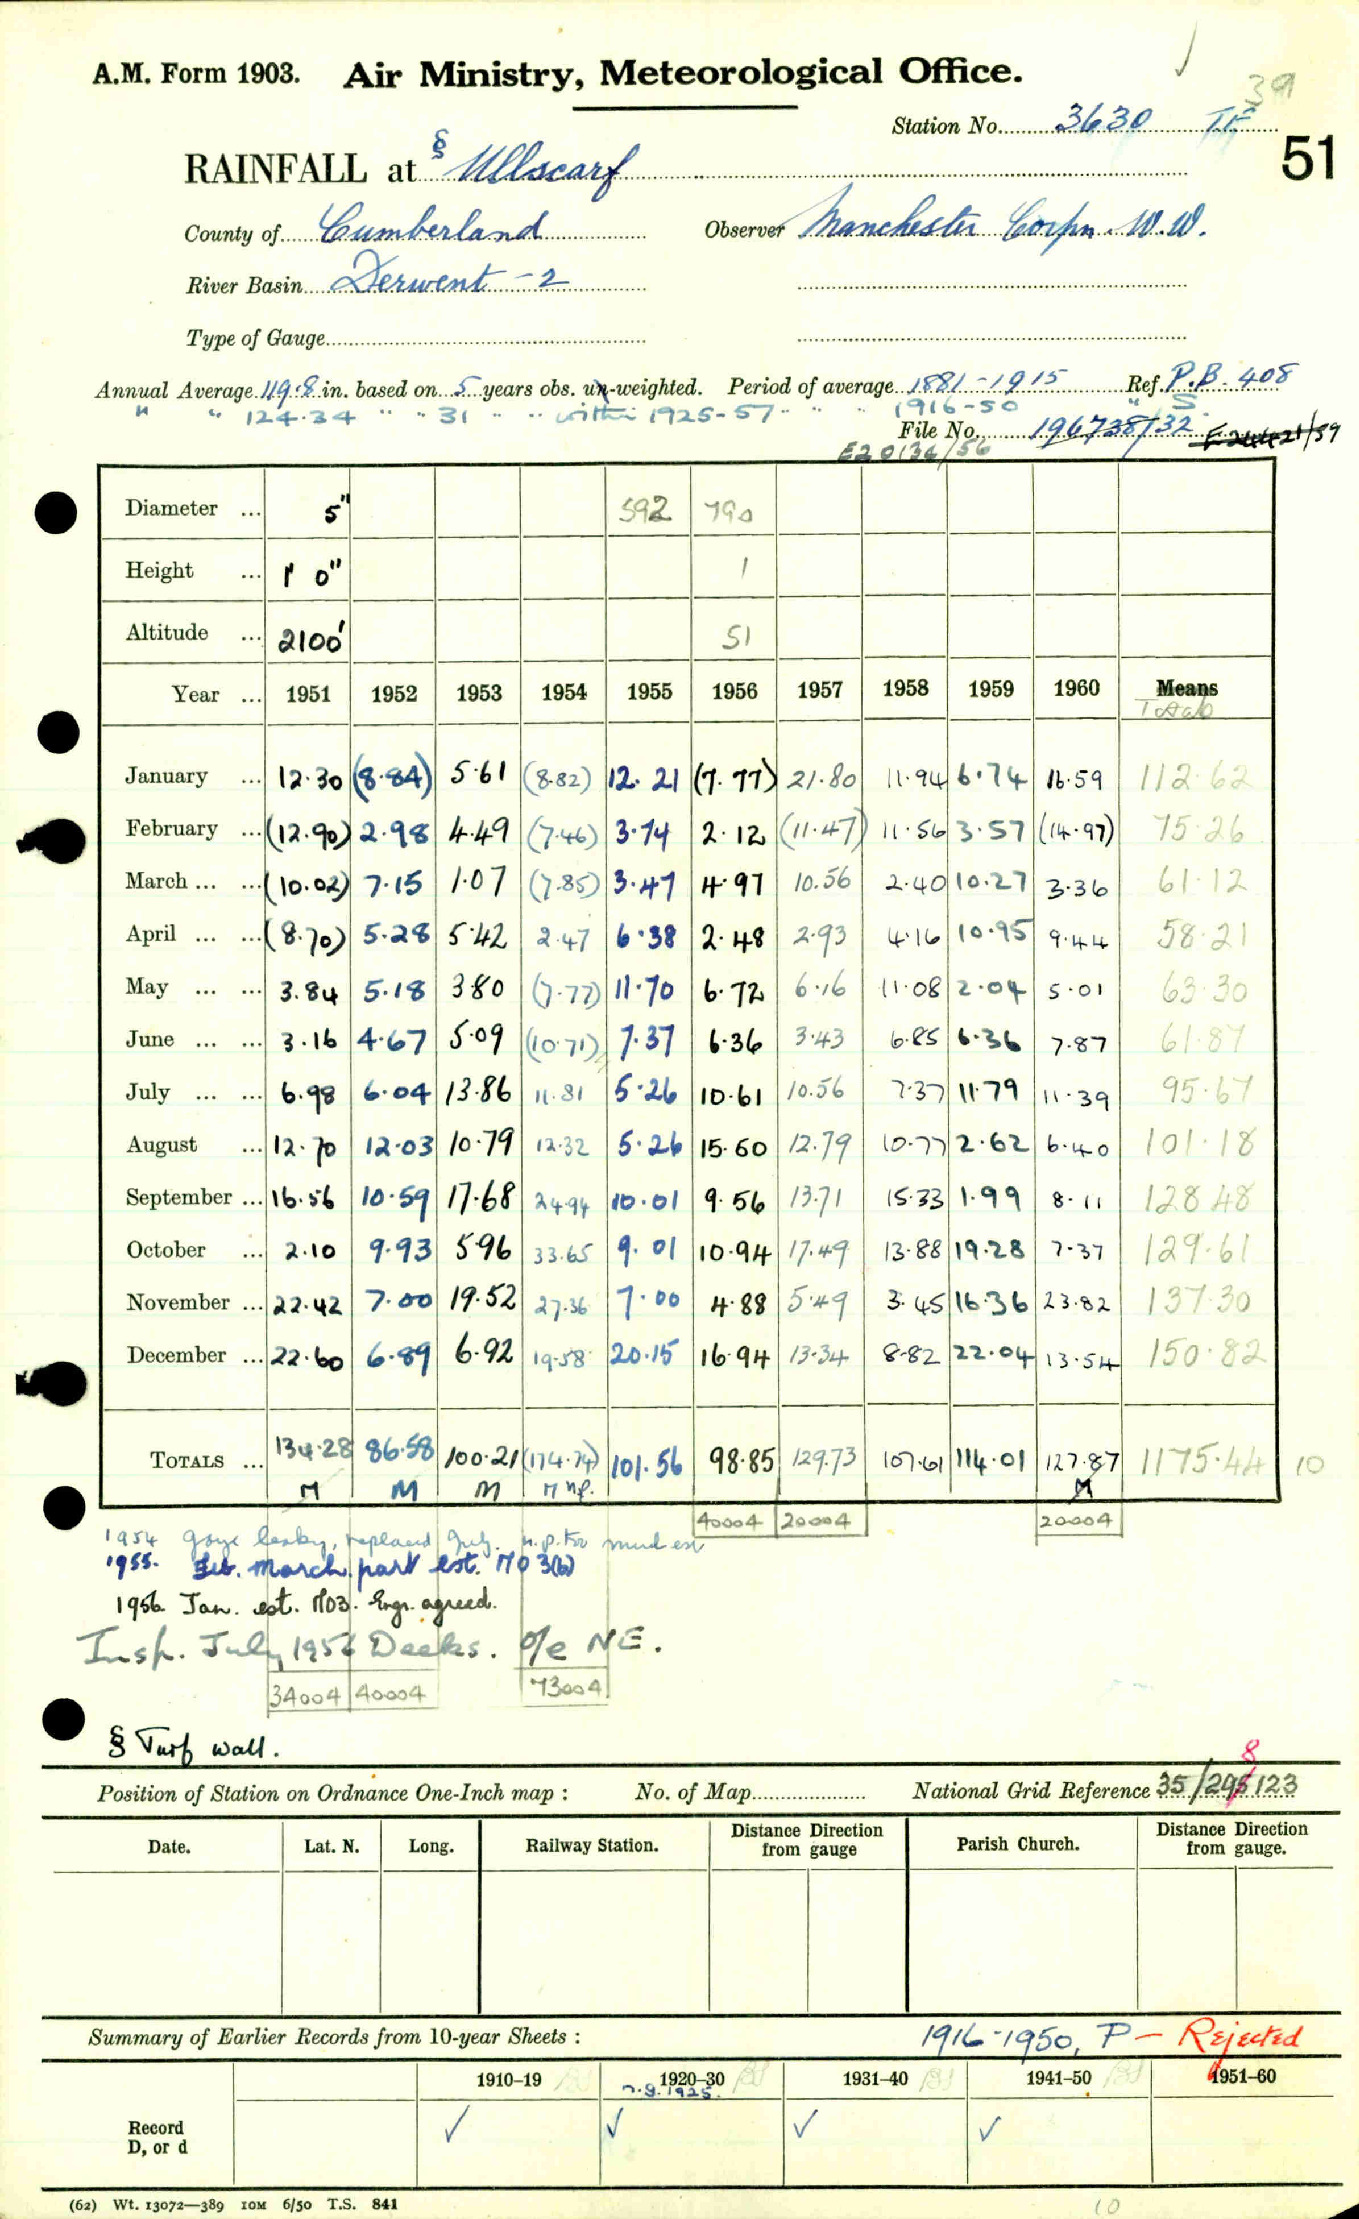 39
A.M. Form 1903. Air Ministry, Meteorological Office.
Station No. 3630
51
RAINFALL at § Ullscarf
County of Cumberland Observer Manchester Corpn. W.W.
River Basin Derwent - 2
Type of Gauge
Annual Average 119.8 in. based on 5 years obs. un-weighted. Period of average 1881-1915 Ref. P.B. 408
" " 124.34 " " 31 " " within 1925-57 " " " 1916-50 " S.
File No. 196738/32
E20134/56
Diameter ... 5" 592 790
Height ... 1' 0" 1
Altitude ... 2100' 51
Year ... 1951 1952 1953 1954 1955 1956 1957 1958 1959 1960 Means
Totals
January ... 12.30 (8.84) 5.61 (8.82) 12.21 (7.77) 21.80 11.94 6.74 16.59 112.62
February ... (12.90) 2.98 4.49 (7.46) 3.74 2.12 (11.47) 11.56 3.57 (14.97) 75.26
March ... ... (10.02) 7.15 1.07 (7.85) 3.47 4.97 10.56 2.40 10.27 3.36 61.12
April ... ... (8.70) 5.28 5.42 2.47 6.38 2.48 2.93 4.16 10.95 9.44 58.21
May ... ... 3.84 5.18 3.80 (7.77) 11.70 6.72 6.16 11.08 2.04 5.01 63.30
June ... ... 3.16 4.67 5.09 (10.71) 7.37 6.36 3.43 6.85 6.36 7.87 61.87
July ... ... 6.98 6.04 13.86 11.81 5.26 10.61 10.56 7.37 11.79 11.39 95.67
August ... 12.70 12.03 10.79 12.32 5.26 15.60 12.79 10.77 2.62 6.40 101.18
September ... 16.56 10.59 17.68 24.94 10.01 9.56 13.71 15.33 1.99 8.11 128.48
October ... 2.10 9.93 5.96 33.65 9.01 10.94 17.49 13.88 19.28 7.37 129.61
November ... 22.42 7.00 19.52 27.36 7.00 4.88 5.49 3.45 16.36 23.82 137.30
December ... 22.60 6.89 6.92 19.58 20.15 16.94 13.34 8.82 22.04 13.54 150.82
TOTALS ... 134.28 86.58 100.21 (174.74) 101.56 98.85 129.73 107.61 114.01 127.87 1175.44 10
M M M M n.p. M
40004 20004 20004
1954 gauge leaky, replaced July. n.p. for much est
1955. Feb. March part est. MO3(b)
1956 Jan. est. MO3. Engr. agreed.
Insp. July 1956 Deeks. o/e NE.
34004 40004 73004
§ Turf wall.
8
Position of Station on Ordnance One-Inch map : No. of Map National Grid Reference 35/295123
Date. Lat. N. Long. Railway Station. Distance Direction from gauge Parish Church. Distance Direction from gauge.
Summary of Earlier Records from 10-year Sheets : 1916-1950, P - Rejected
1910–19 1920–30 1931–40 1941–50 1951–60
1925.
Record D, or d ✓ ✓ ✓ ✓
(62) Wt. 13072—389 10M 6/50 T.S. 841
10